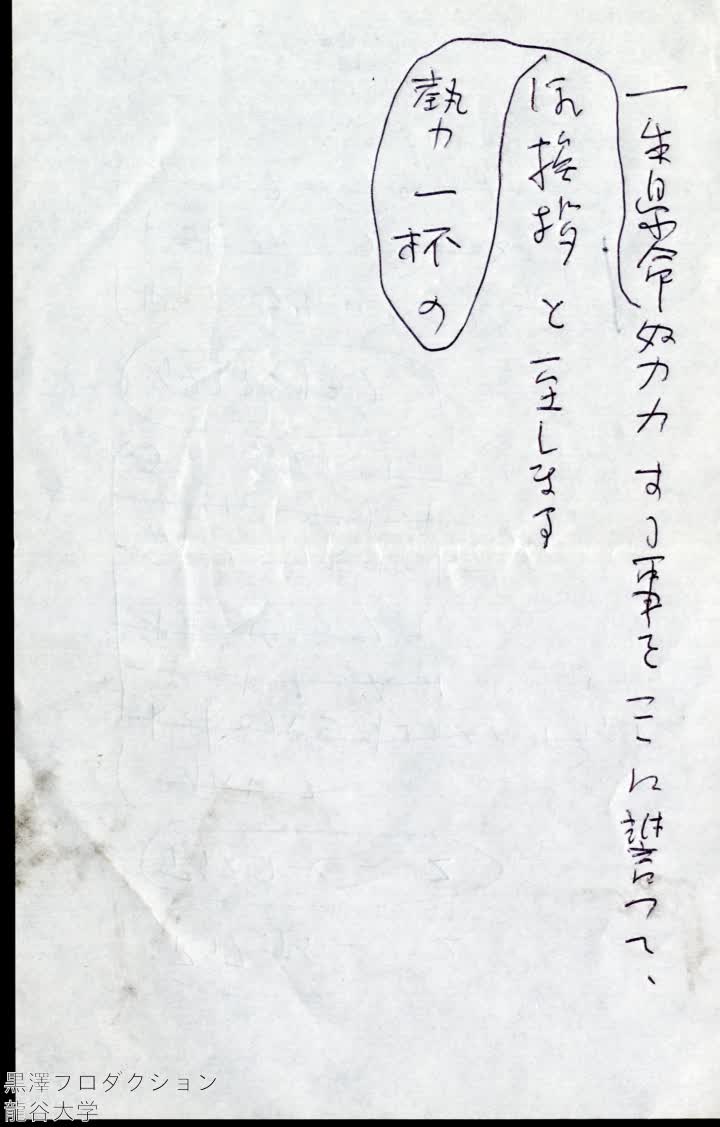 一生県命努力する事をここに誓つて、
御挨拶と至します
勢力一杯の
黒澤フロダクション
龍谷大学